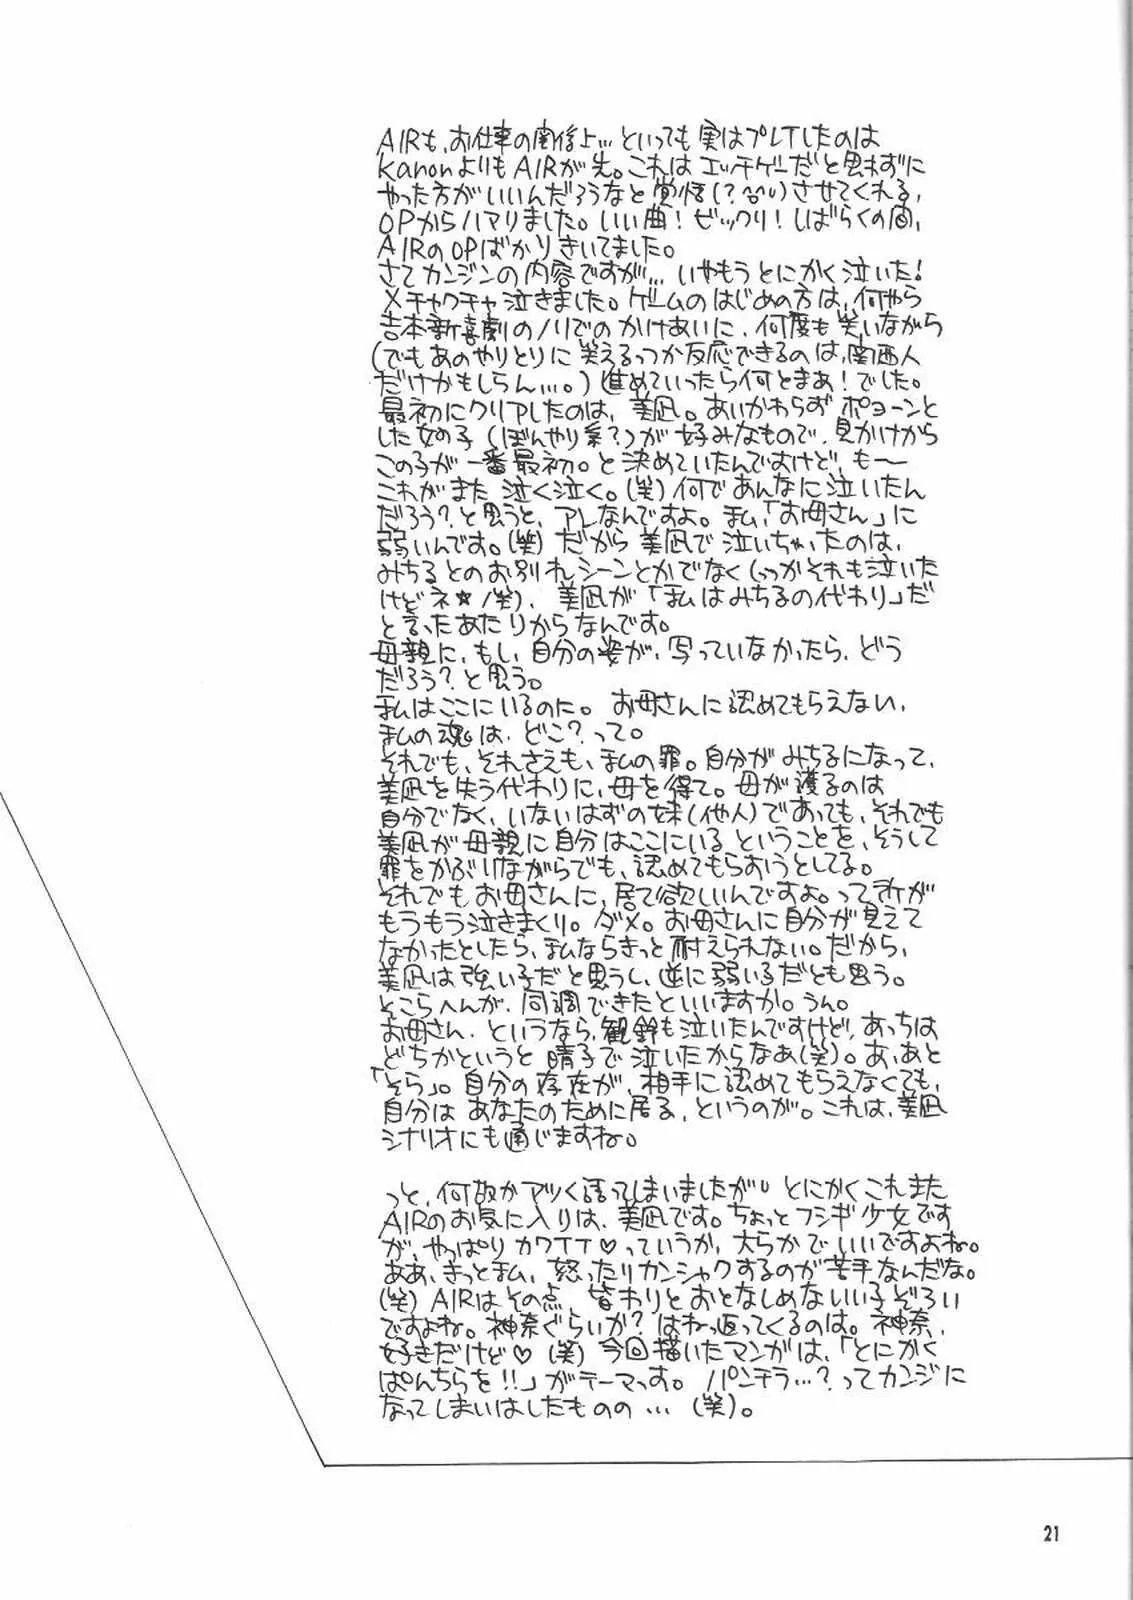 AIRも、お仕事の関係上…といっても実はプレイしたのは
KanonよりもAIRが先。これはエッチゲーだと思わずに
やった方がいいんだろうなと覚悟(?^^;)させてくれる、
OPからハマりました。いい曲!ビックリ!しばらくの間、
AIRのOPばかりきいてました。
さてカンジンの内容ですが… いやもうとにかく泣いた!
メチャクチャ泣きました。ゲームのはじめの方は、何やら
吉本新喜劇のノリでのかけあいに、何度も笑いながら
(でもあのやりとりに笑えるっつか反応できるのは、関西人
だけかもしらん…。)進めていったら何とまあ!でした。
最初にクリアしたのは、美凪。あいかわらずポヨーンと
した女の子(ぼんやり系?)が好みなもので、見かけから
この子が一番最初。と決めていたんですけど、も〜
これがまた泣く泣く。(笑)何であんなに泣いたん
だろう?と思うと、アレなんですよ。私、「お母さん」に
弱いんです。(笑)だから美凪で泣いちゃったのは、
みちるとのお別れシーンとかでなく(っつかそれも泣いた
けどネ☆/笑)、美凪が「私はみちるの代わり」だ
と言ったあたりからなんです。
母親に、もし、自分の姿が、写っていなかったら、どう
だろう?と思う。
私はここにいるのに。お母さんに認めてもらえない、
私の魂は、どこ?って。
それでも、それさえも、私の罪。自分がみちるになって、
美凪を失う代わりに、母を得て。母が護るのは
自分でなく、いないはずの妹(他人)であっても、それでも
美凪が母親に自分はここにいるということを、そうして
罪をかぶりながらでも、認めてもらおうとしてる。
それでもお母さんに、居て欲しいんですよ。って所が
もうもう泣きまくり。ダメ。お母さんに自分が見えて
なかったとしたら、私ならきっと耐えられない。だから、
美凪は強い子だと思うし、逆に弱い子だとも思う。
そこらへんが、同調できたといいますか。うん。
お母さん、というなら、観鈴も泣いたんですけど、あっちは
どちかというと晴子で泣いたからなあ(笑)。あ、あと
「そら」。自分の存在が、相手に認めてもらえなくても、
自分はあなたのために居る、というのが。これは、美凪
シナリオにも通じますね。

っと、何故かアツく語ってしまいましたが。とにかくこれまた
AIRのお気に入りは、美凪です。ちょっとフシギ少女です
が、やっぱりカワイイ♡っていうか、大らかでいいですよね。
ああ、きっと私、怒ったりカンシャクするのが苦手なんだな。
(笑)AIRはその点、皆わりとおとなしめないい子ぞろい
ですよね。神奈ぐらいか?はねっ返ってくるのは。神奈、
好きだけど♡(笑)今回描いたマンガは、「とにかく
ぱんちらを!!」がテーマっす。パンチラ…?ってカンジに
なってしまいはしたものの…(笑)。
21